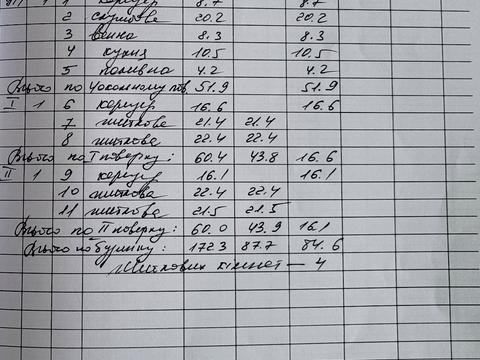 1 коридор 8.7 8.7
2 службове 20.2 20.2
3 ванна 8.3 8.3
4 кухня 10.5 10.5
5 паливна 4.2 4.2
Всього по цокольному пов. 51.9 51.9
I 1 6 коридор 16.6 16.6
7 житлова 21.4 21.4
8 житлова 22.4 22.4
Всього по I поверху: 60.4 43.8 16.6
II 1 9 коридор 16.1 16.1
10 житлова 22.4 22.4
11 житлова 21.5 21.5
Всього по II поверху: 60.0 43.9 16.1
Всього по будинку: 172.3 87.7 84.6
Житлових кімнат — 4